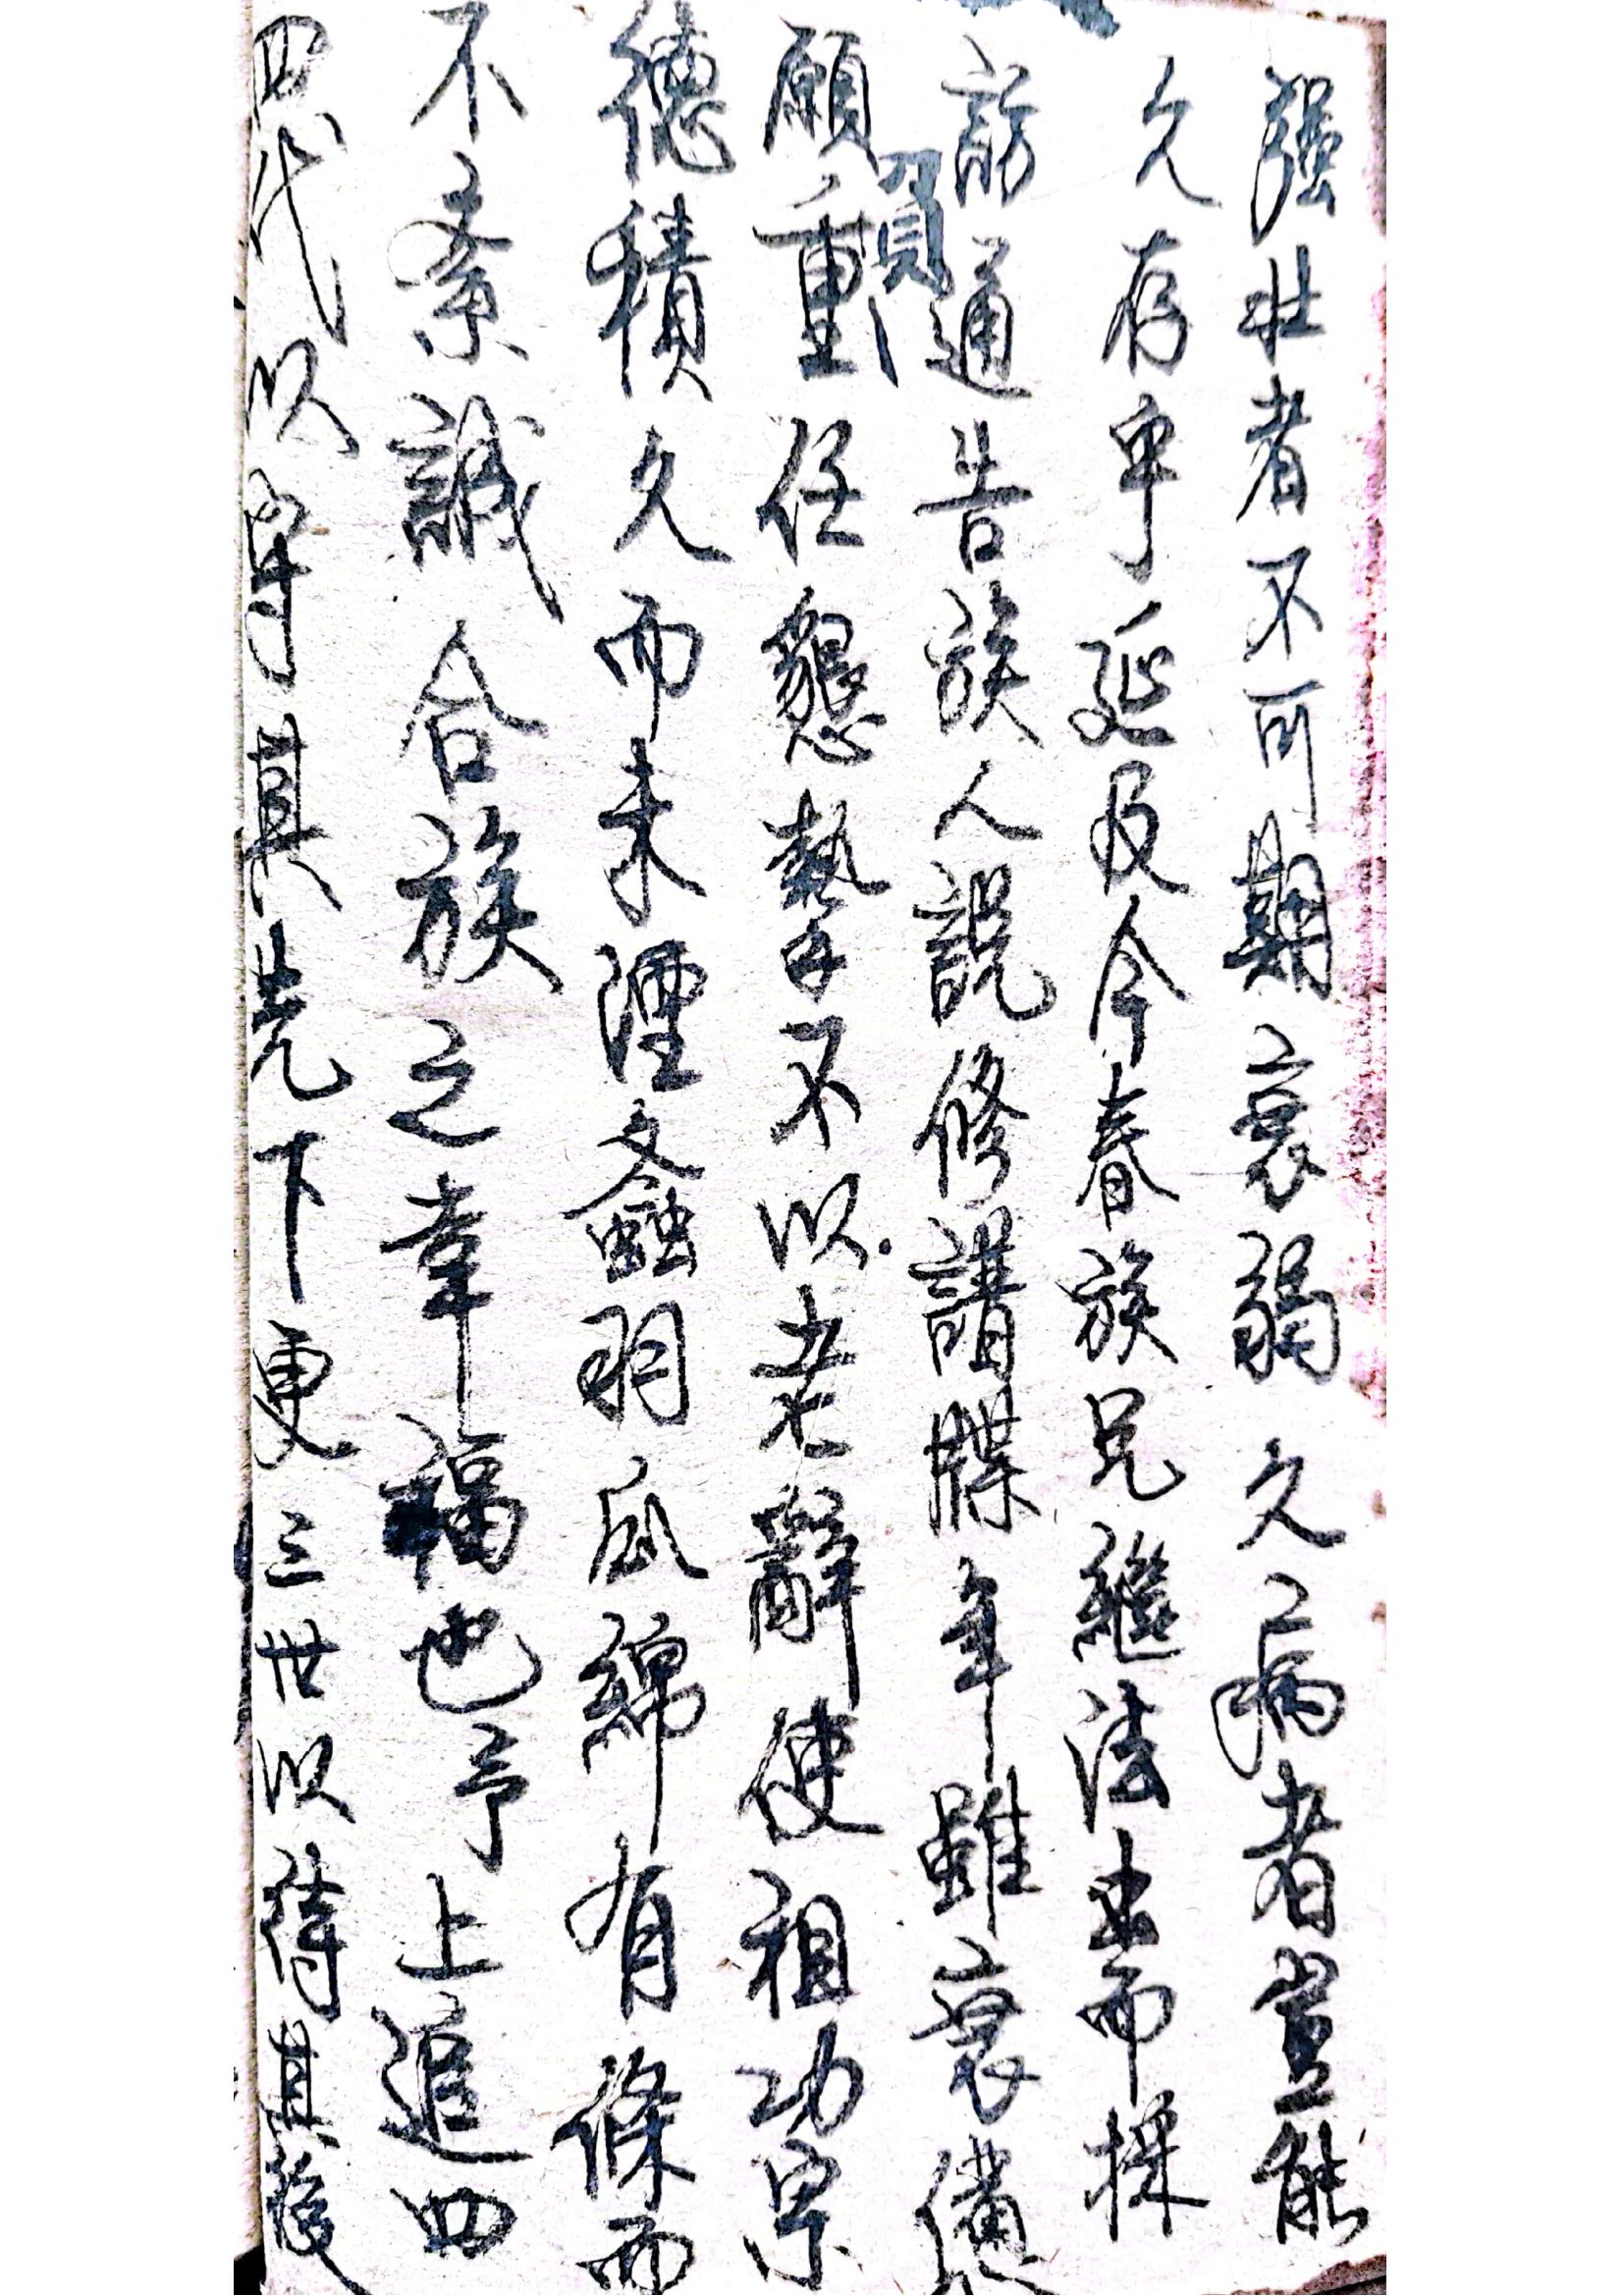 强壯者不可期衰弱久亡病者豈能
久存乎延及今春族兄繼法出而採
訪通告族人説修譜牒年雖衰儘
願負重任懇摯不以老辭使祖功宗
德積久而未湮螽羽瓜綿有條而
不紊誠合族之幸福也予上追四
四代以尊其先下更三世以待其後